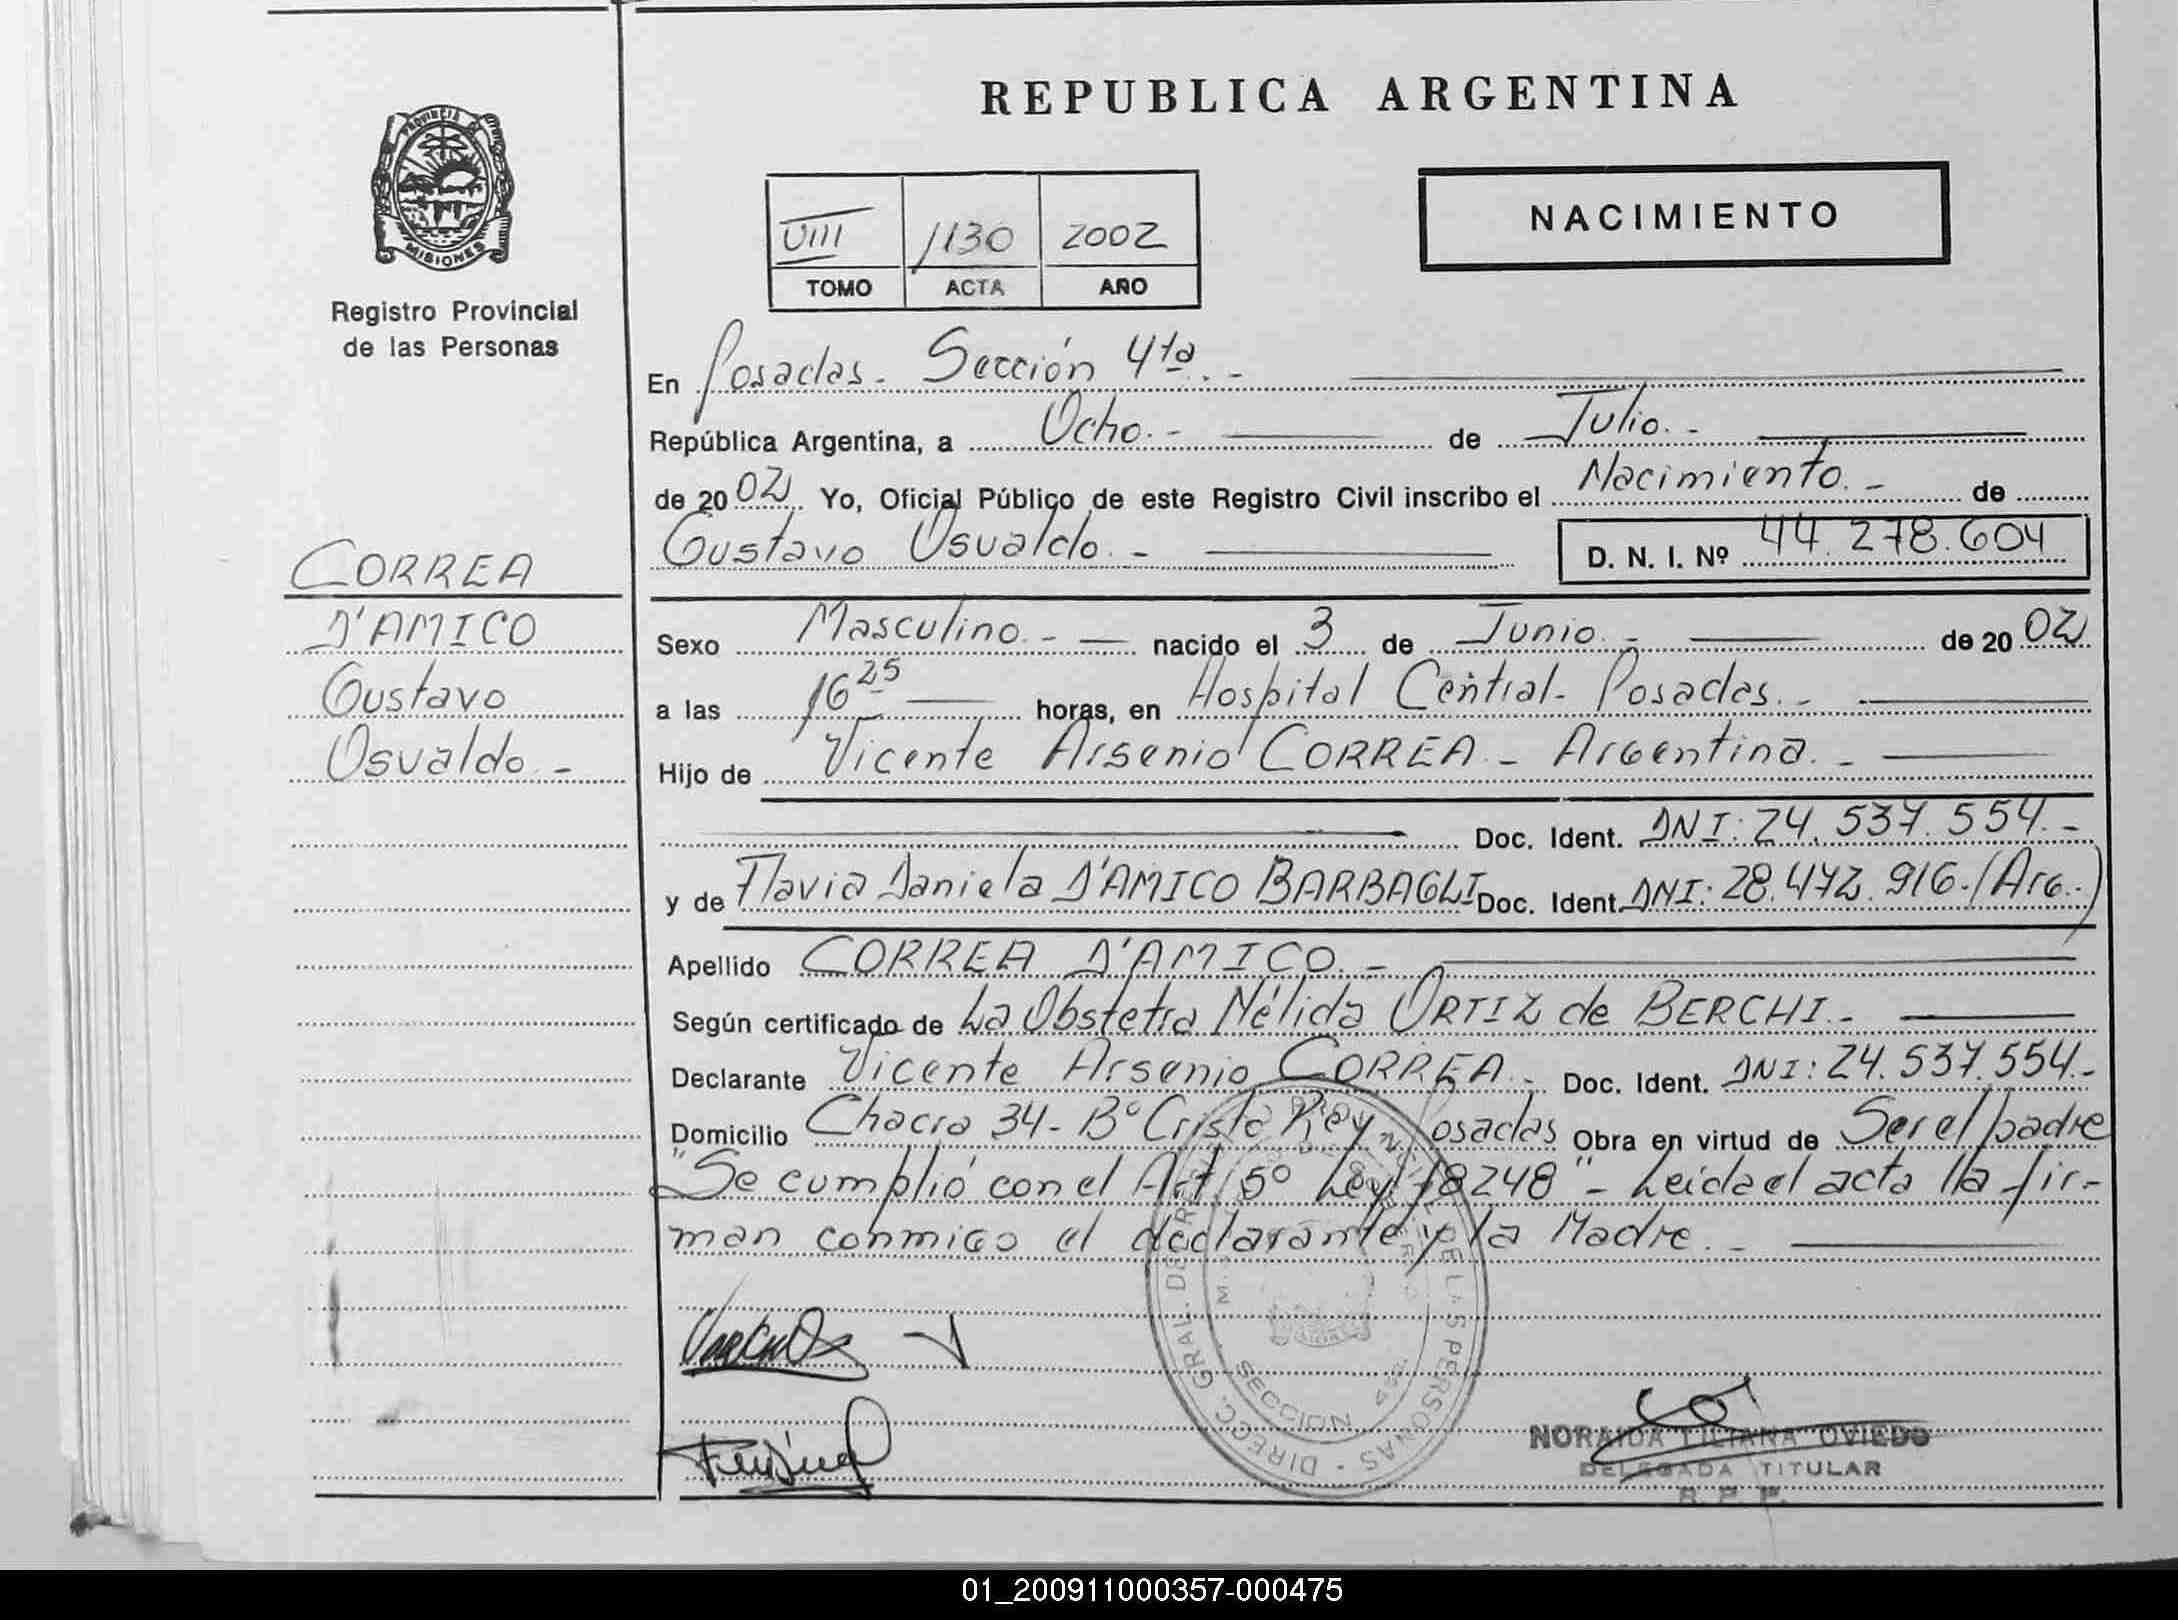 REPUBLICA ARGENTINA
PROVINCIA DE
MISIONES
Registro Provincial
de las Personas
NACIMIENTO
VIII 1130 2002
TOMO ACTA AÑO
En Posadas. Sección 4ta. -
República Argentina, a Ocho. - de Julio. -
de 2002 Yo, Oficial Público de este Registro Civil inscribo el Nacimiento. - de
Gustavo Osvaldo. - D. N. I. Nº 44.278.604
CORREA
D'AMICO
Gustavo
Osvaldo. -
Sexo Masculino. - nacido el 3 de Junio. - de 2002
a las 16 25 horas, en Hospital Central - Posadas. -
Hijo de Vicente Arsenio CORREA - Argentina. -
Doc. Ident. DNI: 24.537.554. -
y de Flavia Daniela D'AMICO BARBAGLI Doc. Ident. DNI: 28.472.916. (Arg.)
Apellido CORREA D'AMICO. -
Según certificado de La Obstetra Nélida ORTIZ de BERCHI. -
Declarante Vicente Arsenio CORREA. - Doc. Ident. DNI: 24.537.554. -
Domicilio Chacra 34 - Bº Cristo Rey Posadas Obra en virtud de Ser el padre
"Se cumplió con el Art. 5º Ley 18248" - Leída el acta lla fir-
man conmigo el declarante y la Madre. -
DIRECC. GRAL. DE REG. DE LAS PERSONAS
SECCION 4ta.
NORAIDA LILIANA OVIEDO
DELEGADA TITULAR
R. P. P.
01_200911000357-000475